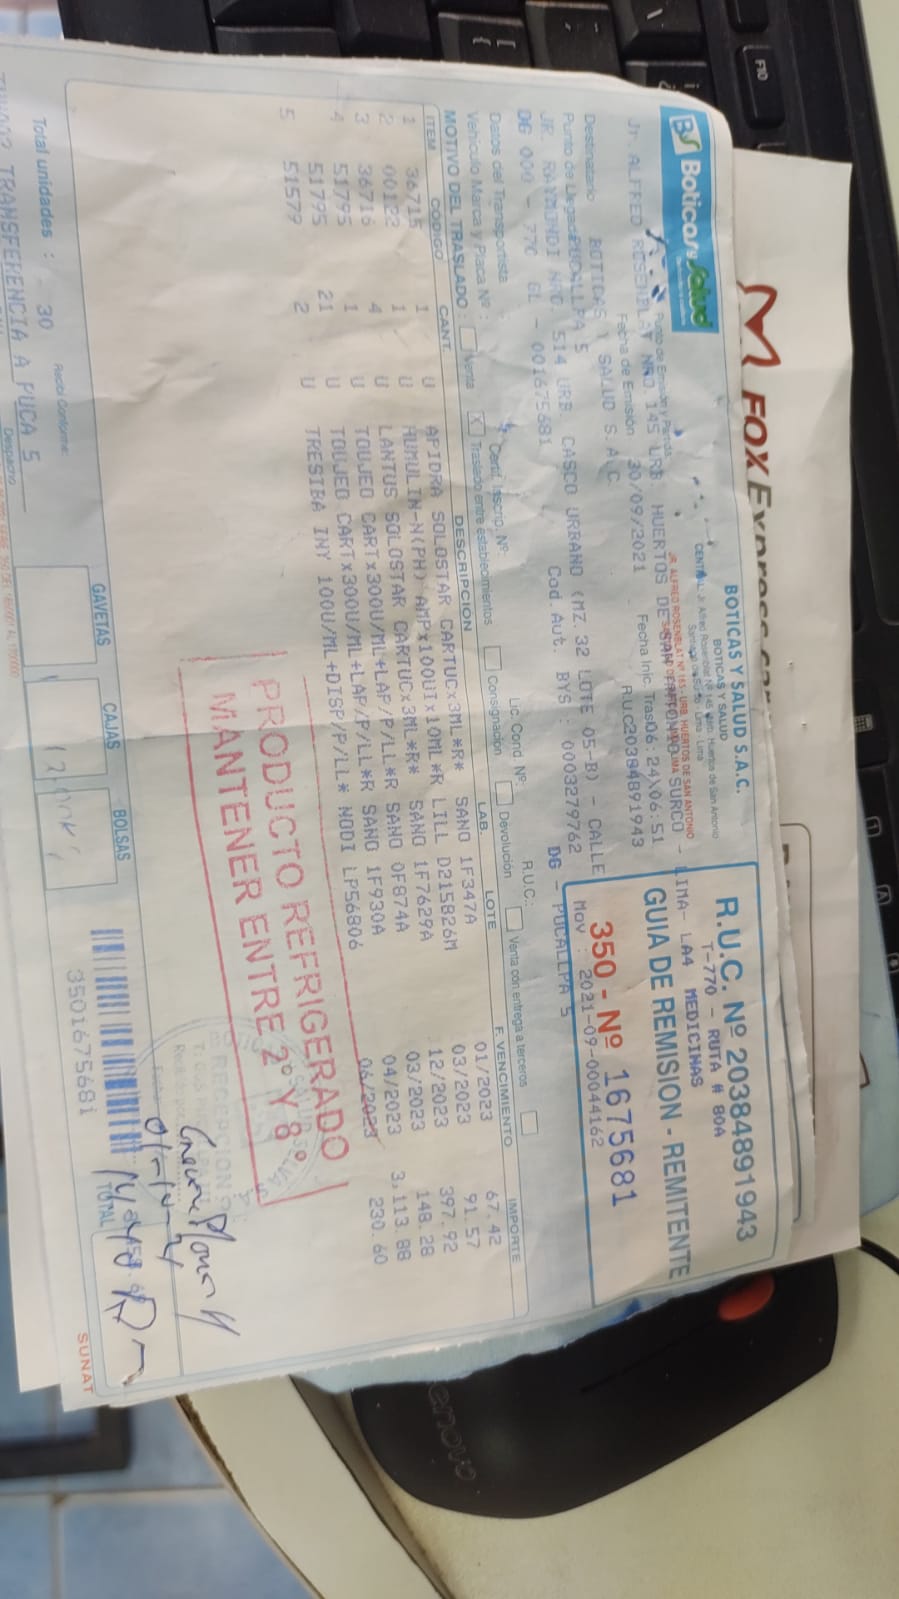 FOX Express
Boticas y Salud
BOTICAS Y SALUD S.A.C.
BOTICAS Y SALUD
CENTRAL: Jr. Alfred Rosenblat Nº 145 Urb. Huertos de San Antonio
Santiago de Surco - Lima - Lima
JR ALFRED ROSENBLAT Nº 163 - URB. HUERTOS DE SAN ANTONIO
R.U.C. Nº 20384891943
T-770 - RUTA # 80A
LIMA- LA4 MEDICINAS
GUIA DE REMISION - REMITENTE
350 - Nº 1675681
Mov : 2021-09-00044162
Punto de Emisión y Partida:
Jr. ALFRED ROSENBLAT NRO. 145 URB. HUERTOS DE SAN ANTONIO SURCO -
Fecha de Emisión 30/09/2021 Fecha Inic. Tras06:24\06:51
Destinatario BOTICAS Y SALUD S.A.C R.u.c20384891943
Punto de Llegada PUCALLPA 5
JR. RAYMONDI NRO. 514 URB. CASCO URBANO (MZ.32 LOTE 05-B) - CALLE
DG 000 - 770 GL - 001675681 Cod.Aut. BYS : 000329762 DG - PUCALLPA 5
Datos del Transportista
Vehículo Marca y Placa Nº : Certf. Inscrip. Nº: Lic. Cond Nº: R.U.C.:
MOTIVO DEL TRASLADO : Venta X Traslado entre establecimientos Consignación Devolución Venta con entrega a terceros
ITEM CODIGO CANT. DESCRIPCION LAB. LOTE F. VENCIMIENTO IMPORTE
1 36715 1 U APIDRA SOLOSTAR CARTUCx3ML*R* SANO 1F347A 01/2023 67.42
2 00122 1 U HUMULIN-N(PH) AMPx100UIx10ML*R LILL D215826M 03/2023 91.57
3 36716 4 U LANTUS SOLOSTAR CARTUCx3ML*R* SANO 1F7629A 12/2023 397.92
4 51795 1 U TOUJEO CARTx300U/ML+LAP/P/LL*R SANO 0F874A 03/2023 148.28
51795 21 U TOUJEO CARTx300U/ML+LAP/P/LL*R SANO 1F930A 04/2023 3,113.88
5 51579 2 U TRESIBA INY 100U/ML+DISP/P/LL* NODI LP56806 06/2023 230.60
PRODUCTO REFRIGERADO
MANTENER ENTRE 2° Y 8°
RECEPCION
Total unidades : 30
Recibí Conforme:
GAVETAS CAJAS BOLSAS
TOTAL
3501675681
TRANSFERENCIA A PUCA 5
Despacho
SUNAT
F10
lenovo